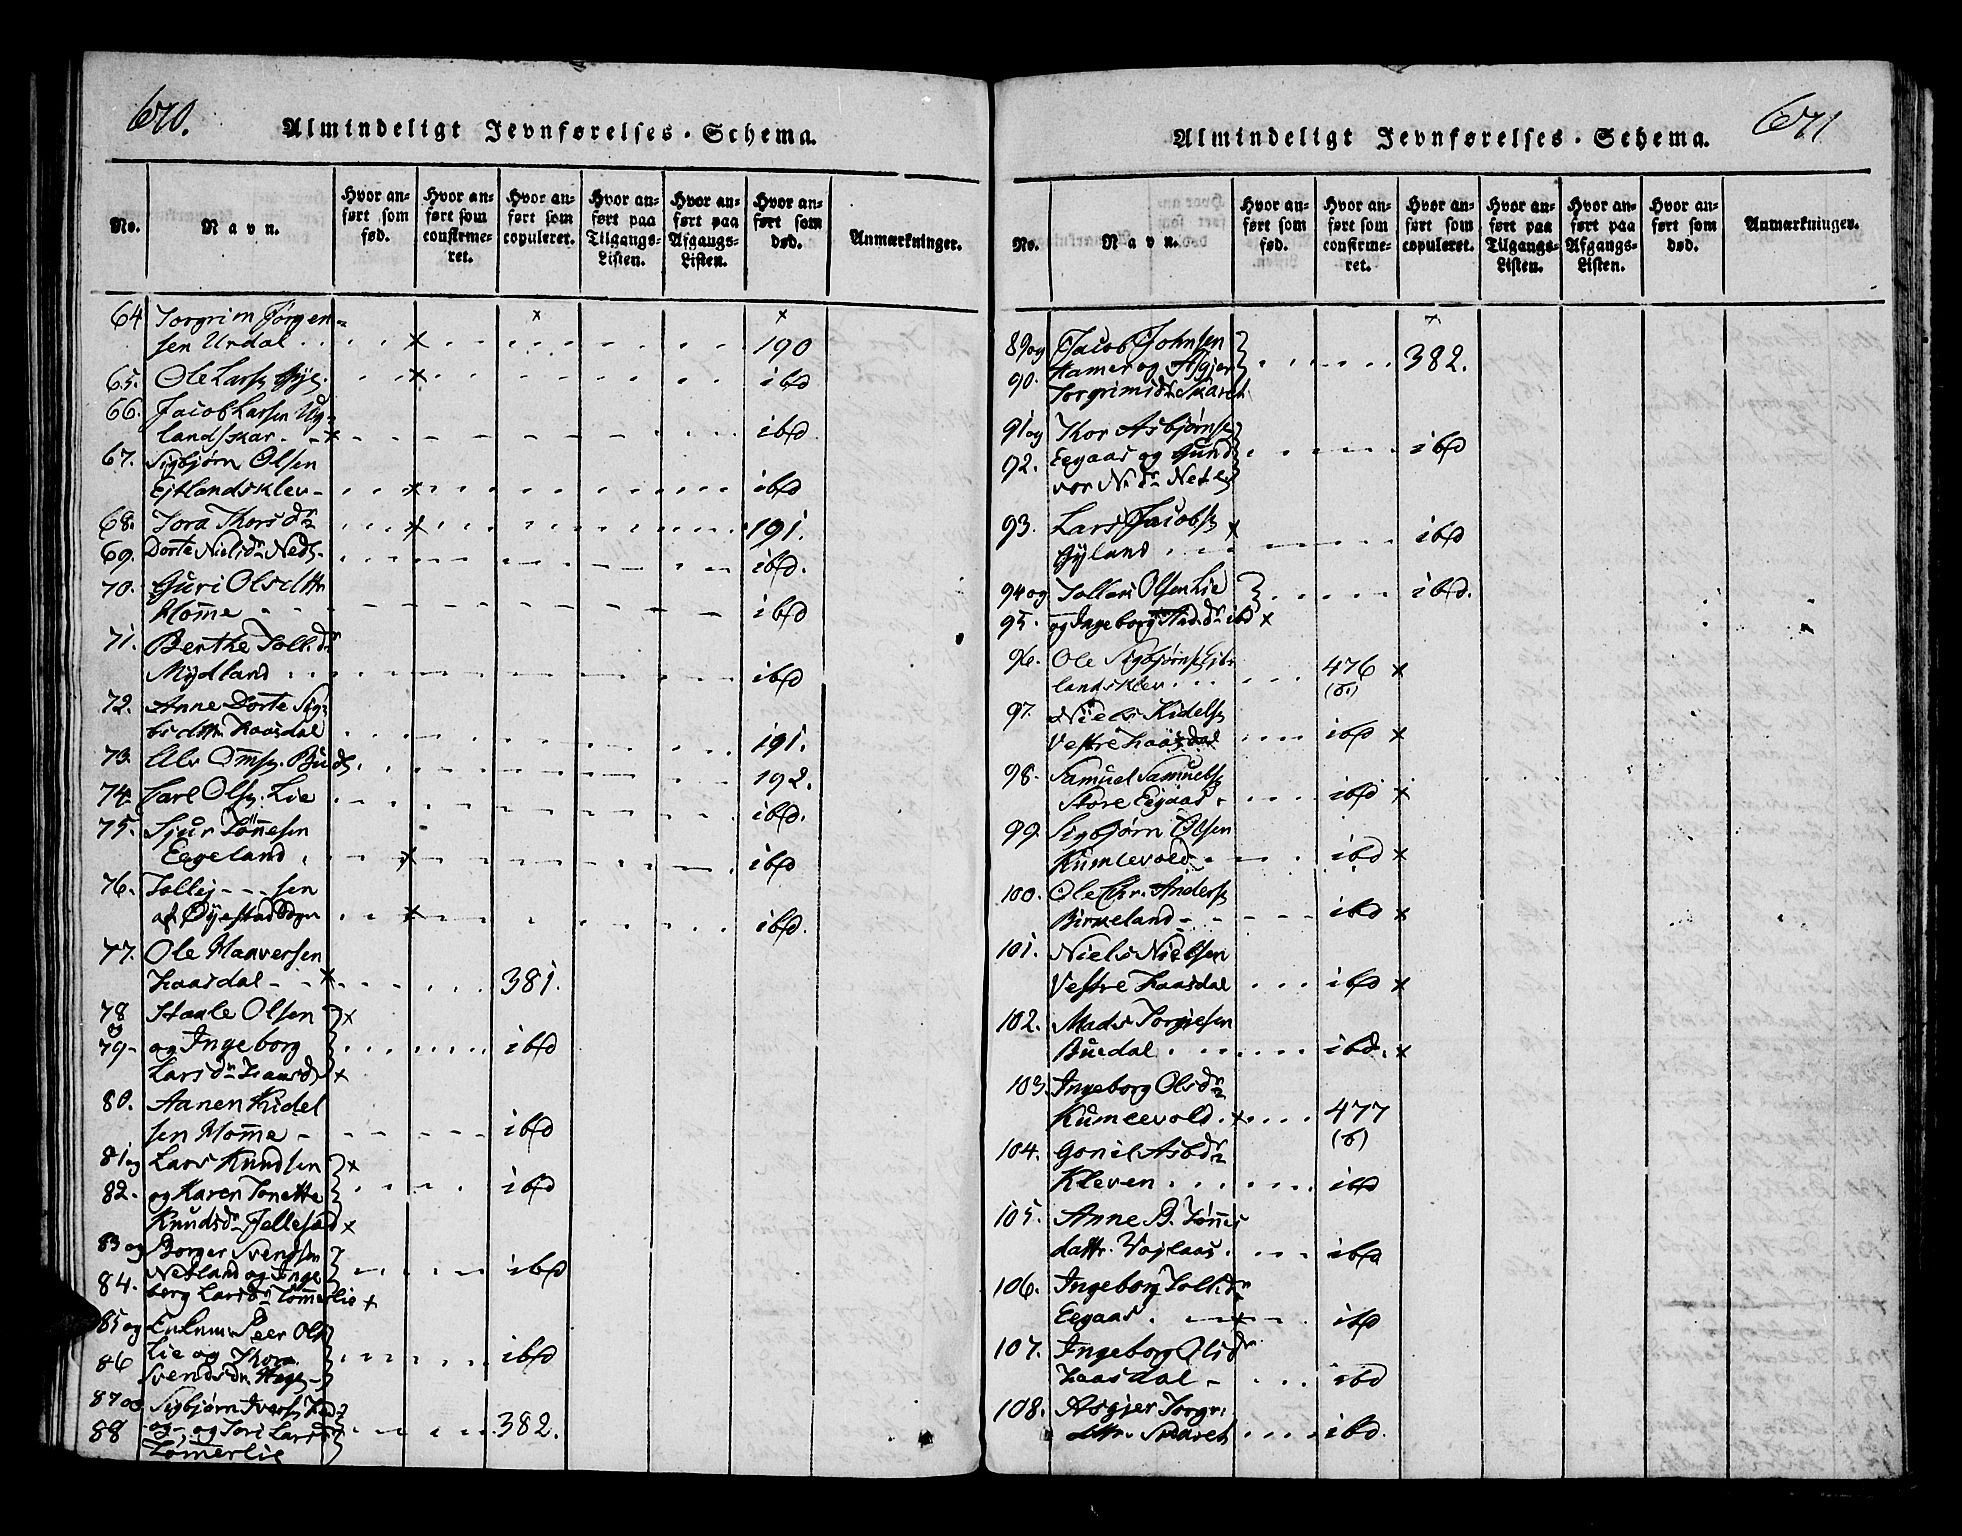 670.
Almindeligt Jevnførelses-Schema.
No.
Navn.
Hvor anført som fød.
Hvor anført som confirmeret.
Hvor anført som copuleret.
Hvor anført paa Tilgangs-Listen.
Hvor anført paa Afgangs-Listen.
Hvor anført som død.
Anmærkninger.
64 Torgrim Jørgen=
sen Urdal x 190
65. Ole Lars x ibd
66. Jacob Larsen Ug=
landskar. x ibd
67. Sigbjørn Olsen
Ejtlandsklev x ibd
68. Tora Thorsdr x 191.
69. Dorte Nielsdr Neds ibd.
70. Guri Olsdttr
Homme ibd
71. Berthe Tollidr
Mydland ibd
72. Anne Dorte Sig=
bidttr Haasdal 191.
73. Alv Omss. 192.
74. Carl Ols. Lie ibd.
75. Sjur Tönnesen
Eegeland x ibd
76. Tollej - - - sen
af Øyestad Sogn x ibd.
77. Ole Haaversen
Haasdal x 381.
78 Staale Olsen x
79 og Ingeborg ibd
Larsdr Haasd x
80. Aanen Kidel
sen Homme ibd
81 og Lars Knudsen x
82. og Karen Tonette ibd
Knudsdr Jellestad x
83 og Borger Svendsen
84. Netland og Inge ibd
berg Larsdr Tömmerlie x
85 og Enkem. Peer Ols
86 Lie og Thora ibd
Svendsdr Hege
87 og Sigbjørn Ivers
88 og Tori Larsd 382.
Tømmerlie
671
Almindeligt Jevnførelses-Schema.
No.
Navn.
Hvor anført som fød.
Hvor anført som confirmeret.
Hvor anført som copuleret.
Hvor anført paa Tilgangs-Listen.
Hvor anført paa Afgangs-Listen.
Hvor anført som død.
Anmærkninger.
89 og Jacob Johnsen
90. Hamer og Asgjer 382.
Torgrimsdr Skaret
91 og Thor Asbjørns
92. Eegaas og Gund ibd
vor Nidr Netl
93. Lars Jacobs x
Gyland ibd
94 og Tollers Olsen Lie ibd.
95. og Ingeborg ibd x
96. Ole Sigbjørns Ejt
landsklev 476 x
97. Niels Kidels
Vestre Haasdal ibd x
98. Samuel Samuels
Store Eegaas ibd x
99. Sigbjørn Olsen
Kumlevold ibd x
100. Ole Chr. Anders
Birkeland ibd x
101. Niels Nielsen
Vestre Haasdal ibd x
102. Mads Torgiesen
Buedal ibd. x
103. Ingeborg Olsdr
Kumlevold. x 477
104. Gonil Asbdr
Kleven ibd
105. Anne B. Tönnes
dattr. Vojlaas. ibd
106. Ingeborg Tollidr
Eegaas. x ibd
107. Ingeborg Olsdr
Haasdal ibd
108. Asgjer Torgr:
dttr. Skaret ibd.